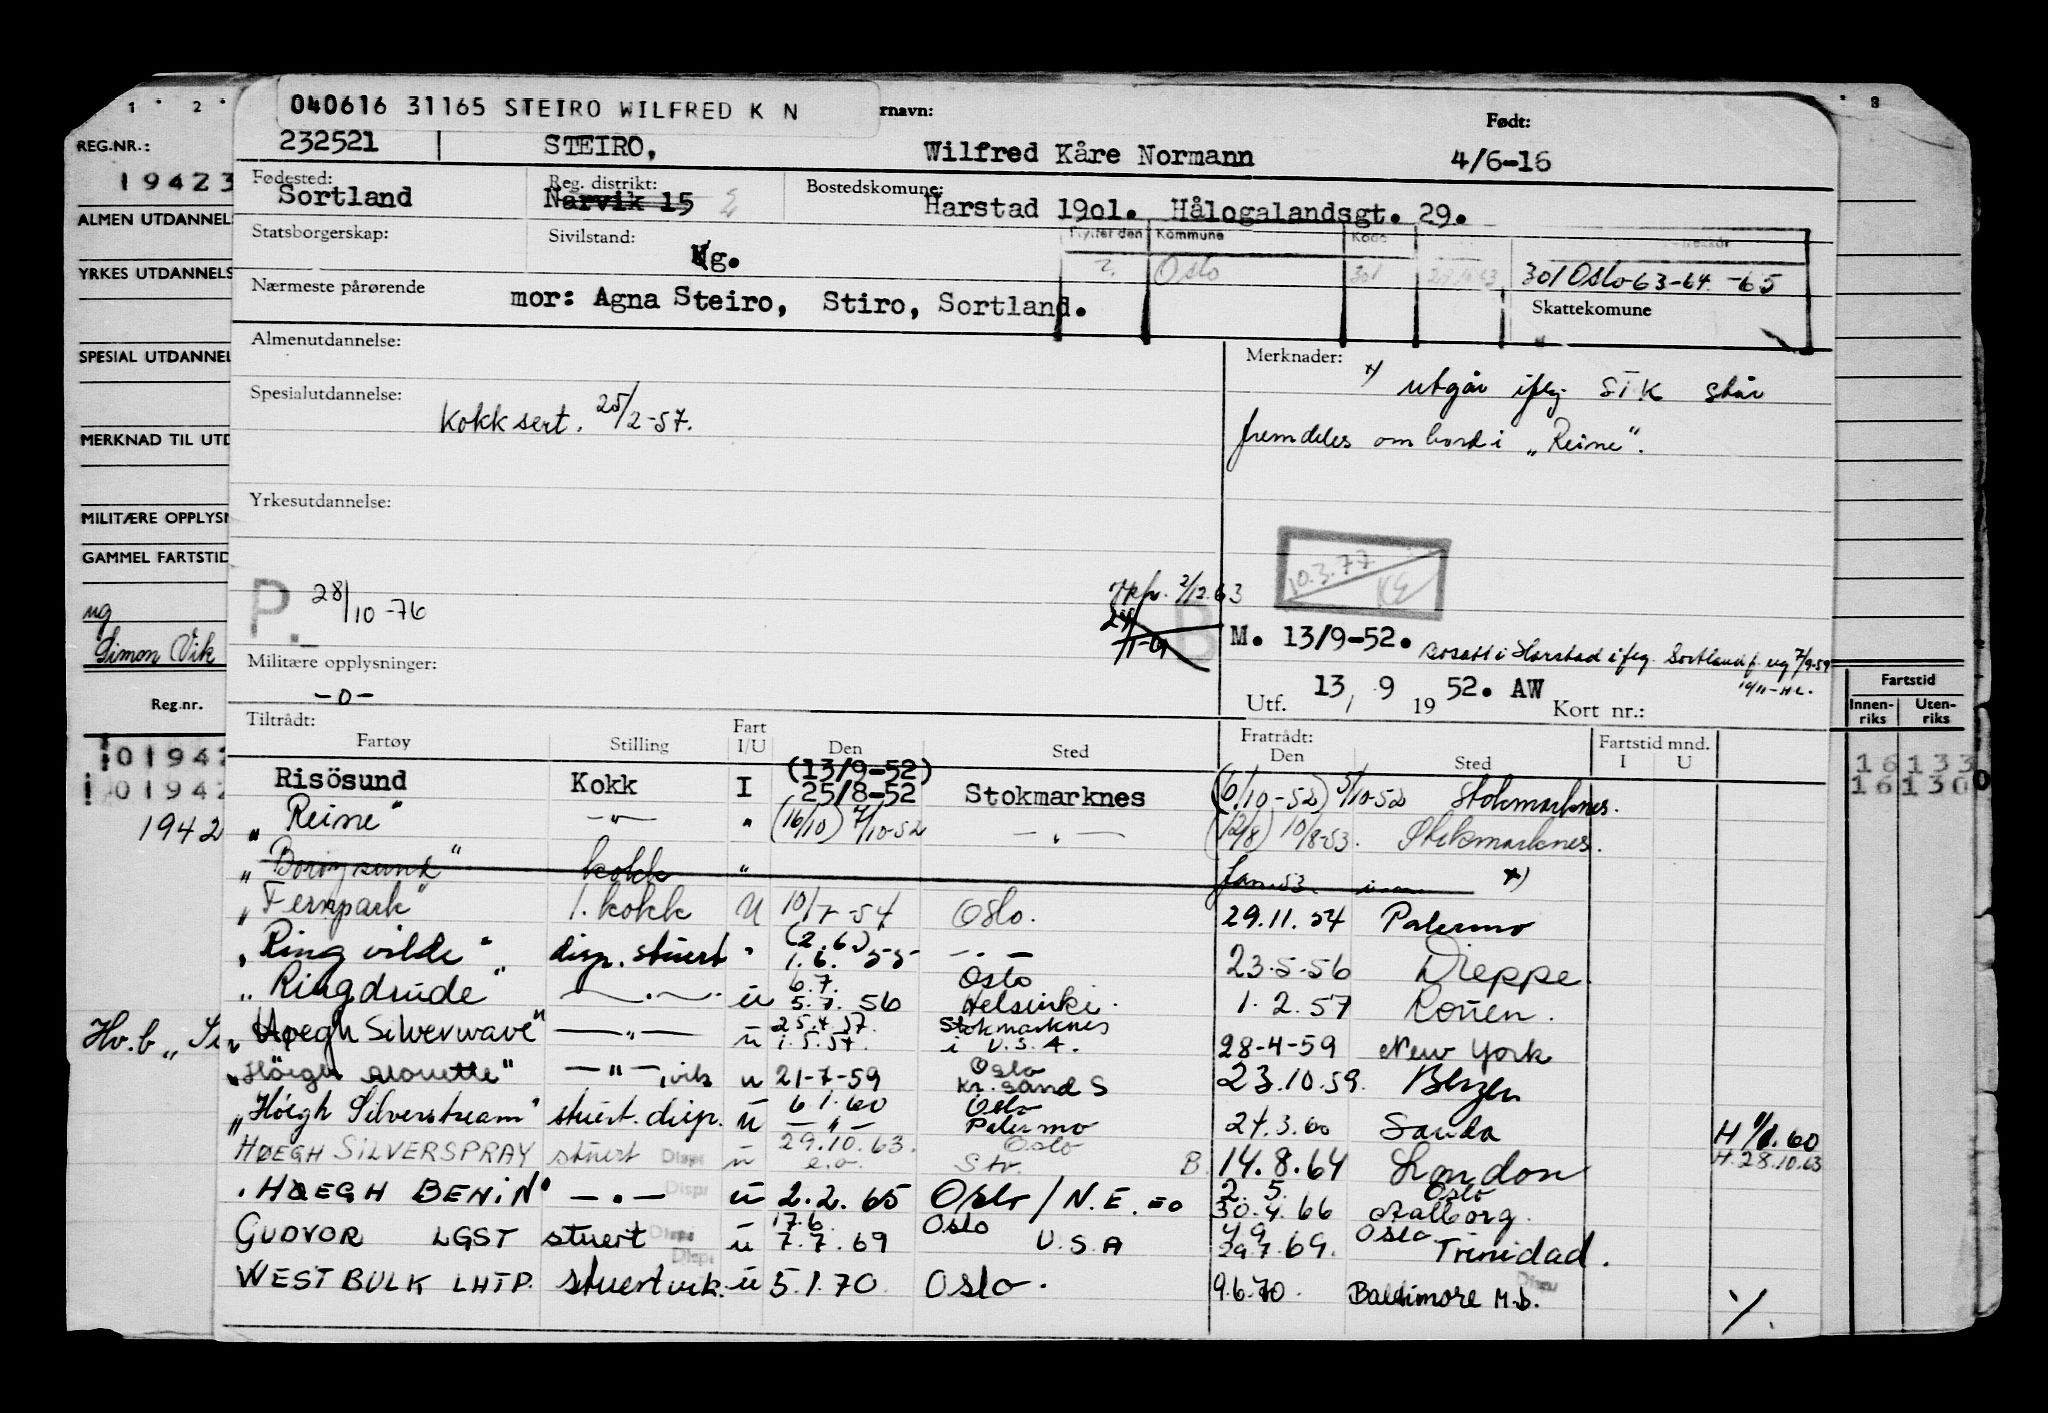 040616 31165 STEIRO WILFRED K N
rnavn:
Født:
232521 STEIRO, Wilfred Kåre Normann 4/6-16
Fødested: Reg. distrikt: Bostedskomune:
Sortland Narvik 15 Harstad 19o1. Hålogalandsgt. 29.
Statsborgerskap: Sivilstand: Kommune Kode
g. Oslo 301 301 Oslo 63-64 -65
Nærmeste pårørende Skattekomune
mor: Agna Steiro, Stiro, Sortland.
Almenutdannelse: Merknader:
x) utgår iflg STK står
Spesialutdannelse: Kokksert. 25/2-57.
fremdeles om bord i „Reine".
Yrkesutdannelse:
10.3.77
P. 28/10-76 2/12.63 B
M. 13/9-52. Bosatt i Harstad iflg. Sortland f. ug 7/9-59
Militære opplysninger:
-o-
Utf. 13, 9 1952. AW Kort nr.:
Tiltrådt: Fart Fratrådt: Fartstid mnd.
Fartøy Stilling I/U Den Sted Den Sted I U
Risösund Kokk I (13/9-52) 25/8-52 Stokmarknes (6/10-52) 5/10-52 Stokmarknes.
„Reine" —"— " (16/10) 7/10-52 —"— (12/8) 10/8-53. Stokmarknes.
„ " kokk " Jan. 53 x)
„Fernpark" 1. kokk U 10/7-54 Oslo. 29.11.54 Palermo
„Ringvilde" disp. stuert " (2.6.) 1.6.55 —"— 23.5.56 Dieppe.
„Ringdrude" —"— ü 6.7. 5.7.56 Oslo Helsinki. 1.2.57 Rouen.
Høegh Silverwave" —"— u 25.4.57. 1.5.57. Stokmarknes i U.S.A. 28-4-59 New York
„Höegh Alouette" —"—, vik u 21-7-59 Oslo Kr. sand S 23.10.59. Bergen
„Höegh Silverstream" stuert. disp. ü 6.1.60 —"— Oslo Palermo 27.3.60 Sauda H 1/1.60
HØEGH SILVERSPRAY stuert Disp ü 29.10.63. e.o. Oslo Str. B. 14.8.64 London H. 28.10.63
"HØEGH BENIN" —"— Disp ü 2.2.65 Oslo / N.E. = o 2.5. 30.4.66 Oslo Aalborg.
GUDVOR LGST stuert Disp ü 17.6. 7.7.69 Oslo U.S.A 29.7.69. Oslo Trinidad.
WESTBULK LHTP. stuert vik. Disp ü 5.1.70 Oslo. 9.6.70. Baltimore M.D. ./.
1 2 3
REG.NR.:
19423
ALMEN UTDANNEL
YRKES UTDANNELS
SPESIAL UTDANNEL
MERKNAD TIL UTD
MILITÆRE OPPLYSN
GAMMEL FARTSTID
ug
Simon Vik
Reg.nr.
01942
01942
1942
Hv.b
Fartstid
Innen-riks Uten-riks
16 133
16 130 0